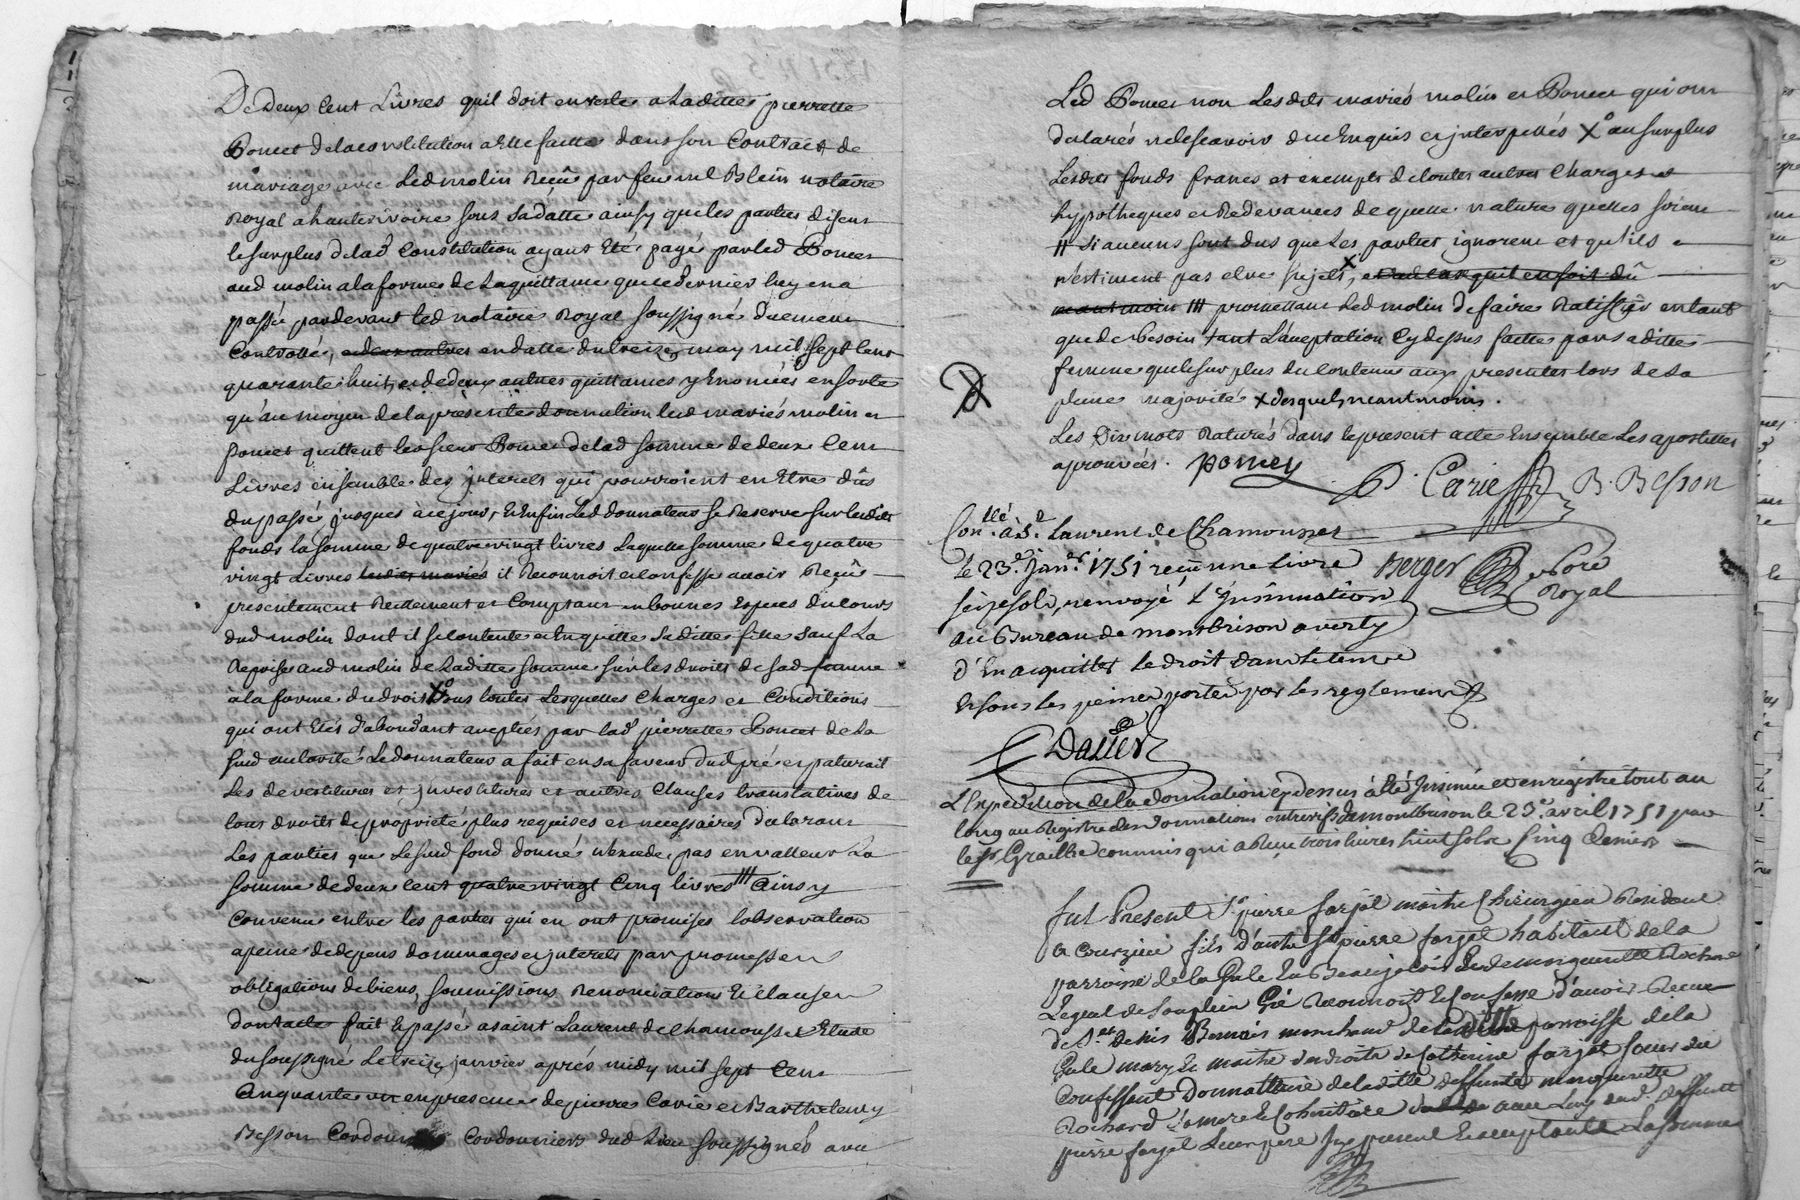 De deux Cent Livres quil doit en reste a Laditte pierrette
Poncet de la constitution a Elle faitte dans son Contract de
mariage avec Led molin Reçû par feu me Blein notaire
Royal a hauterivoire sous sa datte ainsy que les parties disent
le surplus de lad Constitution ayant Eté payé par led Poncet
aud molin a la forme de La quittance que ce dernier luy en a
passée pardevant Led notaire Royal soussigné düement
Controllée, en datte du treize may mil sept cent
quarante huit, et de deux autres quittances y Enoncées en sorte
qu'au moyen de la presente donnation lesd mariés molin et
Poncet quittent led sieur Poncet de lad somme de deux Cent
Livres ensemble des jnterets qui pourroient en Etre dûs
du passé jusques à ce jour, Enfin Led donnateur se Reserve sur lesdits
fonds la somme de quatre vingt livres Laquelle somme de quatre
vingt Livres lesdits mariés il Reconnoit et Confesse avoir Reçûe
presentement Reellement et Comptant en bonnes Especes du Cours
dud molin dont il se Contente et En quitte Saditte fille sauf La
Reprise aud molin de Laditte somme sur les droits de sad femme
a la forme du droit X sous toutes Lesquelles Charges et Conditions
qui ont Etés d'abondant acceptiés par lad pierrette Poncet de La
susd authorité Le donnateur a fait en sa faveur dud pré et paturail
Les devestitures et jnvestitures et autres Clauses translatives de
tous droits de proprieté plus requises et necessaires declarant
Les parties que Le susd fond donné n'excede pas en valleur La
somme de deux cent quatre vingt Cinq livres Ainsy
Convenu entre les parties qui en ont promises lobservation
a peine de depens dommages et jnterets par promesses
obligations de biens, soumissions Renonciations Et Clauses
dont acte fait Et passé a saint Laurent de Chamousset Etude
du soussigné Le treize janvier après midy mil sept Cent
Cinquante un en presence de pierre Carie et Barthelemy
Besson Cordonniers dud Lieu soussignés avec
Led Poncet non Lesdits mariés molin et Poncet qui ont
declarés ne le sçavoir de ce Enquis et jnterpellés X au surplus
Lesdits fonds francs et exempts de toutes autres Charges et
hypotheques et Redevances de quelle nature quelles soient
si aucuns sont dus que Les parties ignorent et qu'ils
n'estiment pas etre sujets, et au cas quil en soit dû
neantmoin promettant Led molin de faire Ratiffier en tant
que de besoin tant L'acceptation Cy dessus faitte par sa ditte
femme que le surplus du Contenu aux presentes lors de sa
pleine majorité X desquels neantmoins.
Les Dix mots Raturés dans le present acte Ensemble Les apostilles
aprouvées. poncey P. Carie B. Besson
Conllé à St Laurent de Chamousset
Le 23e janer 1751 reçu une livre Berger Nore
seize sols, renvoyé L'Insinuation Royal
au Bureau de montbrison averty
d'En acquitter le droit dans le temps
Et sous les peines portées par les reglements
Dallier
L'Expedition de la donnation cy dessus à été Insinuée et enregistrée tout au
long au Registre des donnations entrevifs de montbrison le 23e avril 1751 par
le sr Graillie commis qui a Reçu trois livres huit sols Cinq deniers
fut Present Sr pierre farjot maitre Chirurgien Resident
a Courzieu fils d'autre Sr pierre farjot habitant de la
parroisse de la Gule En Beaujolois et de marguerite Rochard
Lequel de Son plein Gré Reconnoit et Confesse d'avoir Recu
de Sr denis Benois marchand de laditte parroisse de la
Gule mary Et maitre des droits de Catherine farjot soeur du
Confessant Donnattaire de laditte deffunte marguerite
Rochard Sa mere Et Coheritière avec Luy dud. deffunt
pierre farjot Leur pere Icy present Et acceptant La somme